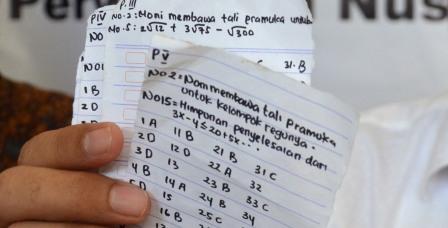 P.III
PIV No.2: Moni membawa tali pramuka
No.5: 2√12 + 3√75 - √300
NO
31. B
NO1
1 B
2 D
PV
NO 2 = Nommembawa tali Pramuka
untuk kelompok regunya.
NO15 = Himpunan penyelesaian dari
3x-4≤20+5x-...
1 A 11 B 21 B 31 C
2 D 12 D 22 A 32
3 D 13 23 B 33 C
4 B 14 A 24 B 34
5D 15 25 C
16 B